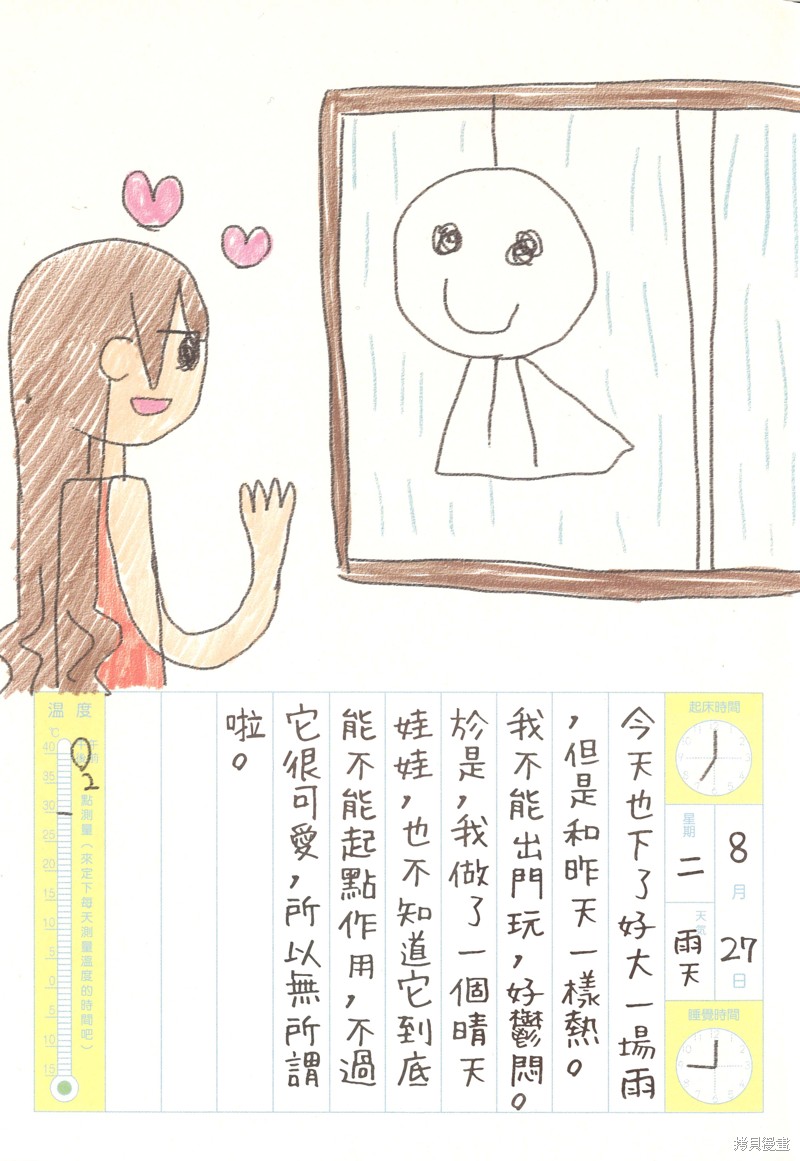 起床時間
8月27日
星期二
天氣 雨天
睡覺時間
今天也下了好大一場雨
，但是和昨天一樣熱。
我不能出門玩，好鬱悶。
於是，我做了一個晴天
娃娃，也不知道它到底
能不能起點作用，不過
它很可愛，所以無所謂
啦。
溫度
℃
午後
2
點測量（來定下每天測量溫度的時間吧）
40
35
30
25
20
15
10
5
0
5
10
15
拷貝漫畫